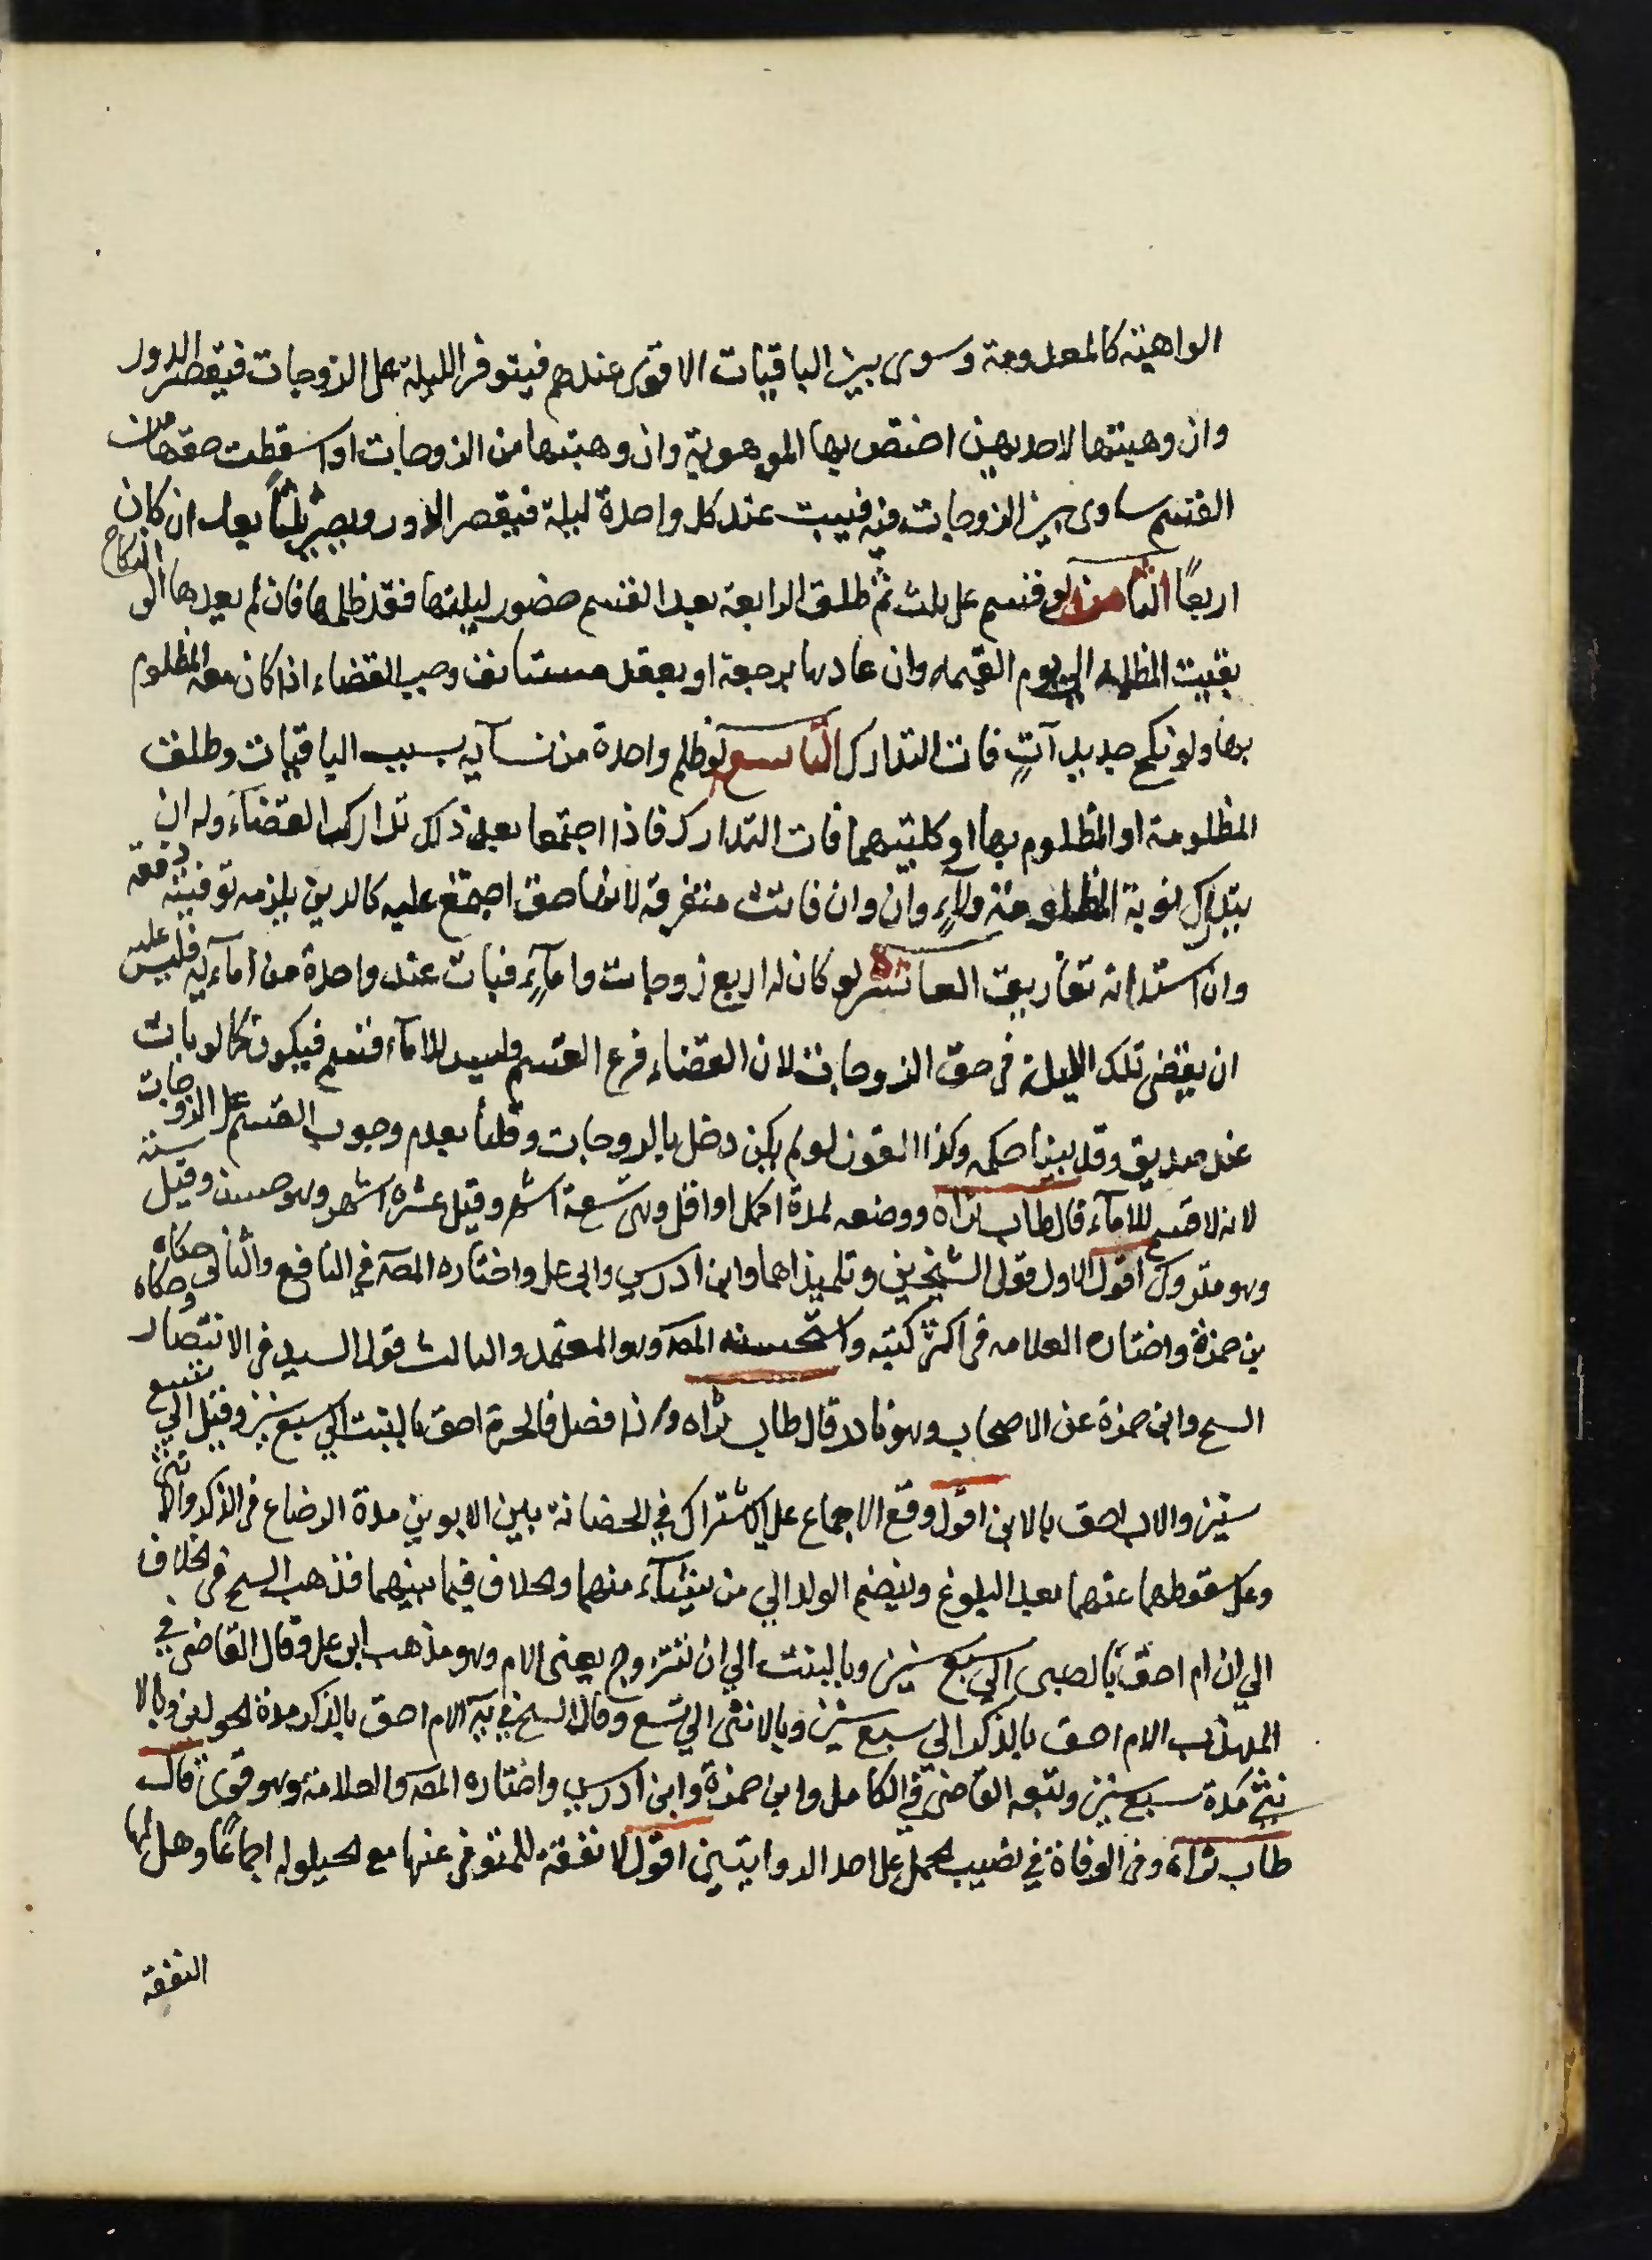 الواهبة كالمعدومة وسوى بين الباقيات الاقوى عندهم فيتوفر الليلة على الزوجات فيقصر الدور
وان وهبتها لاحديهن اختص بها الموهوبة وان وهبتها من الزوجات او اسقطت حقها من
القسم ساوى بين الزوجات فيه فيبيت عند كل واحدة ليلة فيقصر الدور ويصير ثلثا بعد ان كان
اربعًا الثامن لو قسم على ثلث ثم طلق الرابعة بعد القسم حضور ليلتها فقد ظلمها فان لم يعدها الى النكاح
بقيت المظلمة الى يوم القيمه وان عادها برجعة او بعقد مستانف وجب القضاء اذا كان معه المظلوم
بها ولو نكح جديدات فات التدارك التاسع لو ظلم واحدة من نسآيه بسبب الباقيات وطلقت
المظلومة او المظلوم بها او كلتيهما فات التدارك فاذا اجتمعا بعد ذلك تدارك القضآء وله ان
يتدارك نوبة المظلومة ولآء وان وان فاتت متفرقه لانها حق اجتمع عليه كالدين يلزمه توفيته دفعة
وان استدانه تفاريق العاشر لو كان له اربع زوجات وامآء فبات عند واحدة من امآءيه فليس عليه
ان يقضى تلك الليلة فى حق الزوجات لان القضاء فرع القسم وليس للامآء قسم فيكون كما لو بات
عند صديق وقد بينا حكمه وكذا القول لو لم يكن دخل بالزوجات وقلنا بعدم وجوب القسم على الزوجات
لانه لا قسم للامآء قال طاب ثراه ووضعه لمدة الحمل او اقل وهى تسعة اشهر وقيل عشرة اشهر وهو حسن وقيل سنة
وهو متروك اقول الاول قول الشيخين وتلميذاهما وابن ادريس وابى على واختاره المصه في النافع والثانى حكاه
بن حمزة واختاره العلامه فى اكثر كتبه واستحسنه المصه وهو المعتمد والثالث قول السيد فى الانتصار وحكاه
الشيخ وابن حمزة عن الاصحاب وهو نادر قال طاب ثراه واذا فصل فالحرة احق بالبنت الى سبع سنين وقيل الى تسع
سنين والاب احق بالابن اقول وقع الاجماع على الاشتراك في الحضانة بين الابوين مدة الرضاع فى الذكر والانثى
وعلى سقوطهما عنهما بعد البلوغ وينضم الولد الي من يشآء منهما والخلاف فيما بينهما فذهب الشيخ فى الخلاف
الي ان ام احق بالصبى الى سبع سنين وبالبنت الي ان تتزوج يعنى الام وهو مذهب ابن على وقال القاضى في
المهذب الام احق بالذكر الي سبع سنين وبالانثى الي تسع وقال الشيخ في يه الام احق بالذكر مدة الحولين وبالا
نثى مدة سبع سنين وتبعه القاضى في الكامل وابن حمزة وابن ادريس واختاره المصه والعلامة وهو قوى قال
طاب ثراه وفى الوفاة في نصيب الحمل على احد الروايتين اقول لا نفقة للمتوفى عنها مع الحيلوله اجماعًا وهل لها
النفقة